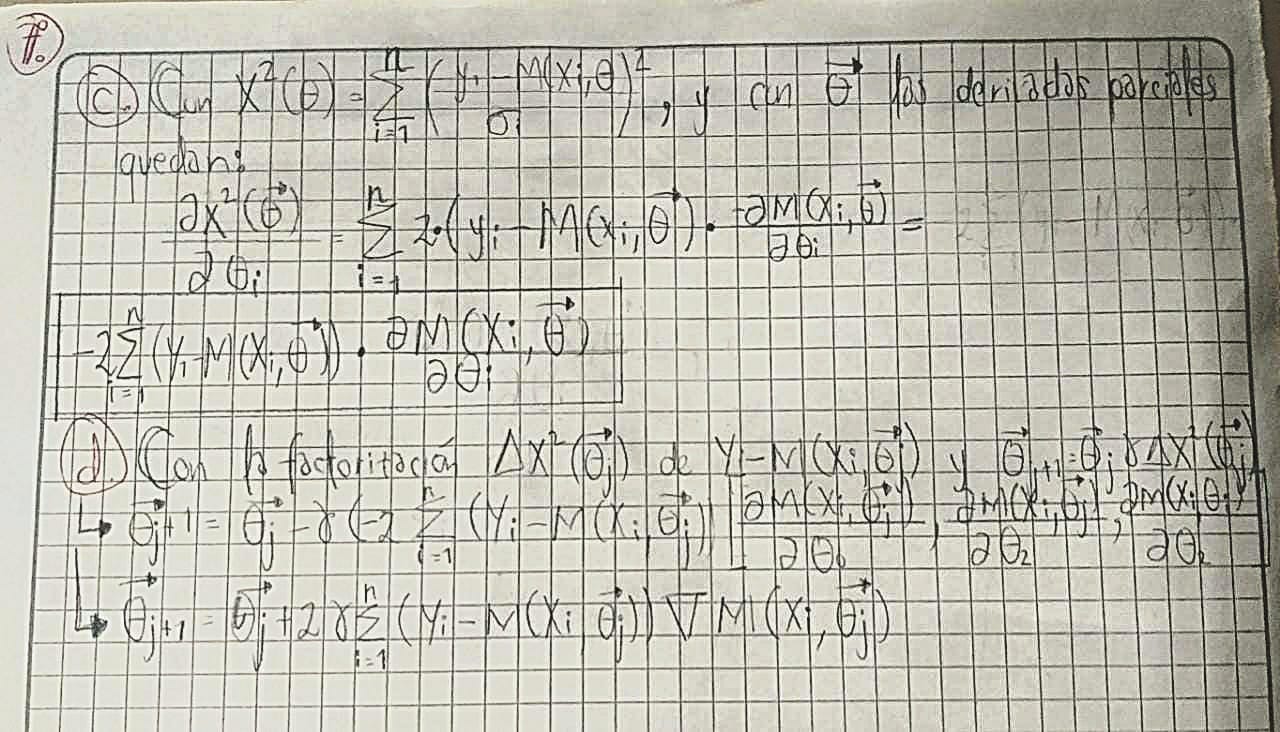 7.
c. Con X²(θ) = Σ_{i=1}^{n} ((yi - M(Xi,θ))/σi)², y con θ⃗ las derivadas parciales
quedan:
∂X²(θ⃗)/∂θi = Σ_{i=1}^{n} 2·(yi - M(Xi,θ⃗))· -∂M(Xi,θ⃗)/∂θi =
-2Σ_{i=1}^{n} (Yi-M(Xi,θ⃗))· ∂M(Xi,θ⃗)/∂θi
d. Con la factorización ΔX²(θ⃗j) de Yi-M(Xi,θ⃗j) y θ⃗j+1=θ⃗j γΔX²(θ⃗j)
↳ θ⃗j+1 = θ⃗j - γ(-2 Σ_{i=1}^{n} (Yi - M(Xi,θ⃗j)) [∂M(Xi,θ⃗j)/∂θ0, ∂M(Xi,θ⃗j)/∂θ2, ∂M(Xi,θj)/∂θ2]
↳ θ⃗j+1 = θ⃗j+2γ Σ_{i=1}^{n} (Yi - M(Xi θ⃗j)) ∇M(Xi,θ⃗j)